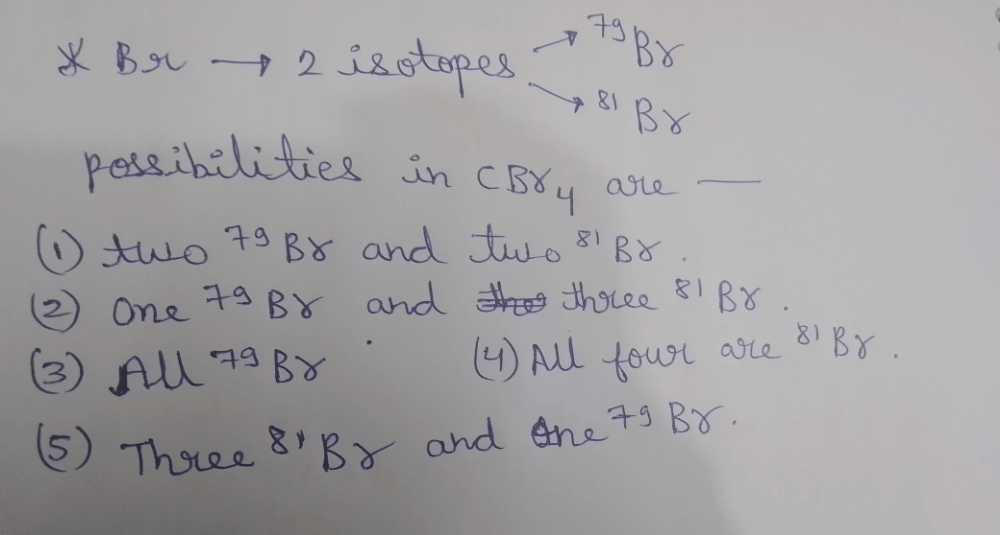 * Br → 2 isotopes → ⁷⁹Br
→ ⁸¹Br
possibilities in CBr₄ are —
(1) two ⁷⁹Br and two ⁸¹Br.
(2) One ⁷⁹Br and three ⁸¹Br.
(3) All ⁷⁹Br (4) All four are ⁸¹Br.
(5) Three ⁸¹Br and One ⁷⁹Br.